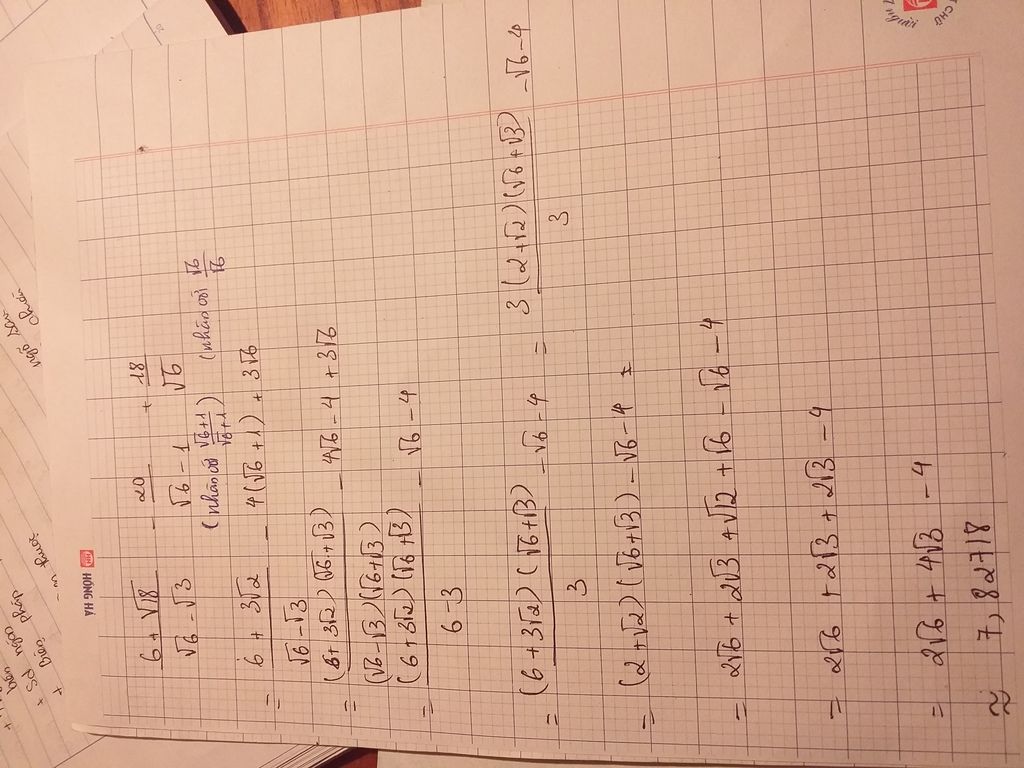 HỒNG HÀ
6 + √18 / √6 - √3 - 20 / √6 - 1 + 18 / √6
(nhân với √6+1 / √6+1) (nhân với √6 / √6
= 6 + 3√2 / √6 - √3 - 4(√6 + 1) + 3√6
= (6 + 3√2) (√6 + √3) / (√6 - √3)(√6 + √3) - 4√6 - 4 + 3√6
= (6 + 3√2) (√6 + √3) / 6 - 3 - √6 - 4
= (6 + 3√2) (√6 + √3) / 3 - √6 - 4 = 3 (2 + √2) (√6 + √3) / 3 - √6 - 4
= (2 + √2) (√6 + √3) - √6 - 4 =
= 2√6 + 2√3 + √12 + √6 - √6 - 4
= 2√6 + 2√3 + 2√3 - 4
= 2√6 + 4√3 - 4
≈ 7,82718